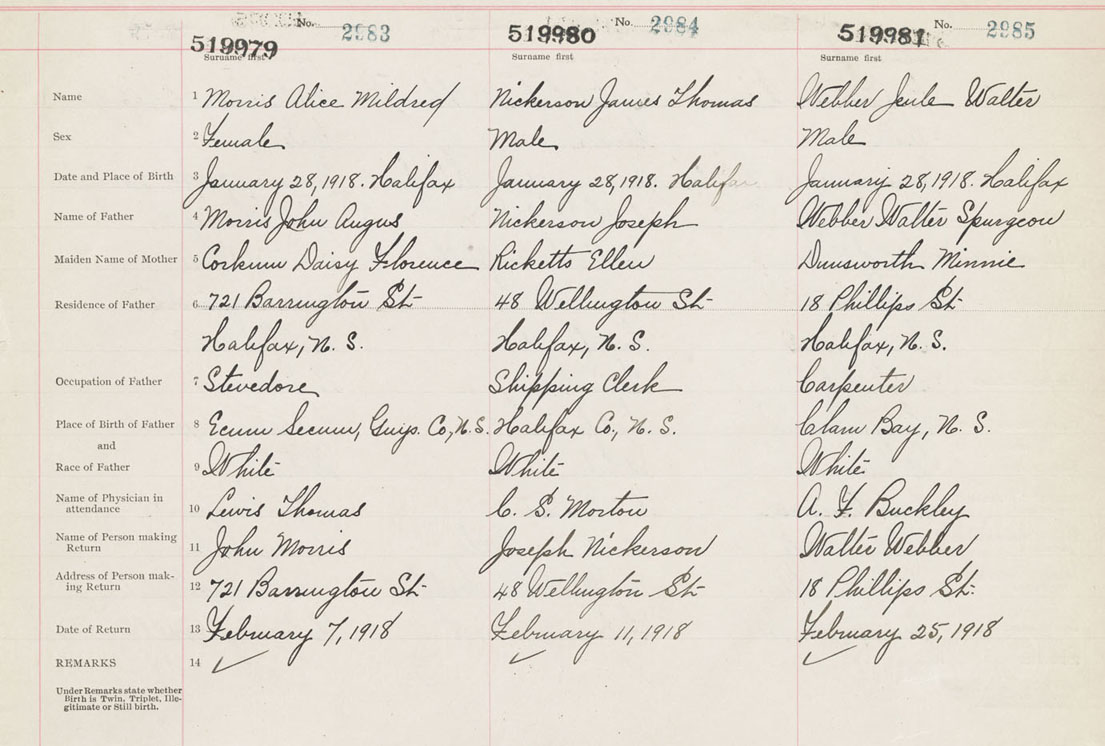 No. 2983 No. 2984 No. 2985
519979 519980 519981
Surname first Surname first Surname first
Name 1 Morris Alice Mildred Nickerson James Thomas Webber Walter
Sex 2 Female Male Male
Date and Place of Birth 3 January 28, 1918. Halifax January 28, 1918. Halifax January 28, 1918. Halifax
Name of Father 4 Morris John Angus Nickerson Joseph Webber Walter Spurgeon
Maiden Name of Mother 5 Corkum Daisy Florence Ricketts Ellen Dunsworth Minnie
Residence of Father 6 721 Barrington St 48 Wellington St 18 Phillips St
Halifax, N. S. Halifax, N. S. Halifax, N. S.
Occupation of Father 7 Stevedore Shipping Clerk Carpenter
Place of Birth of Father 8 Ecum Secum, Guys. Co, N. S. Halifax Co, N. S. Clam Bay, N. S.
and
Race of Father 9 White White White
Name of Physician in
attendance 10 Lewis Thomas C. S. Morton A. F. Buckley
Name of Person making
Return 11 John Morris Joseph Nickerson Walter Webber
Address of Person mak-
ing Return 12 721 Barrington St 48 Wellington St 18 Phillips St.
Date of Return 13 February 7, 1918 February 11, 1918 February 25, 1918
REMARKS 14 ✓ ✓ ✓
Under Remarks state whether
Birth is Twin. Triplet, Ille-
gitimate or Still birth.